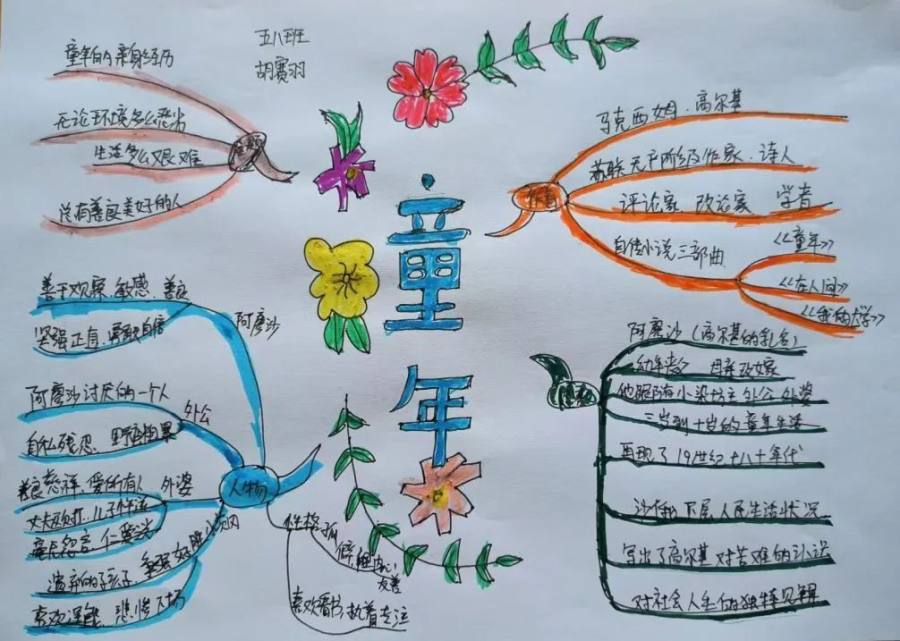 五八班
胡赛羽
童年
童年的亲身经历
无论环境多么恶劣
生活多么艰难
总有善良美好的人
作者
马克西姆·高尔基
苏联无产阶级作家、诗人
评论家、政论家 学者
自传小说三部曲
《童年》
《在人间》
《我的大学》
阿廖沙(高尔基的乳名)
幼年丧父 母亲改嫁
他跟随小染坊主外公外婆
三岁到十岁的童年生活
再现了19世纪七八十年代
沙俄下层人民生活状况
写出了高尔基对苦难的认识
对社会人生的独特见解
人物
阿廖沙
善于观察、敏感、善良
坚强正直、勇敢自信
外公
阿廖沙讨厌的一个人
自私残忍、野蛮
外婆
善良慈祥、爱所有人
丈夫殴打、儿子
仁爱
小茨冈
遗弃的孩子
喜欢逞能 悲惨下场
性格
友善
喜欢看书,执着专注